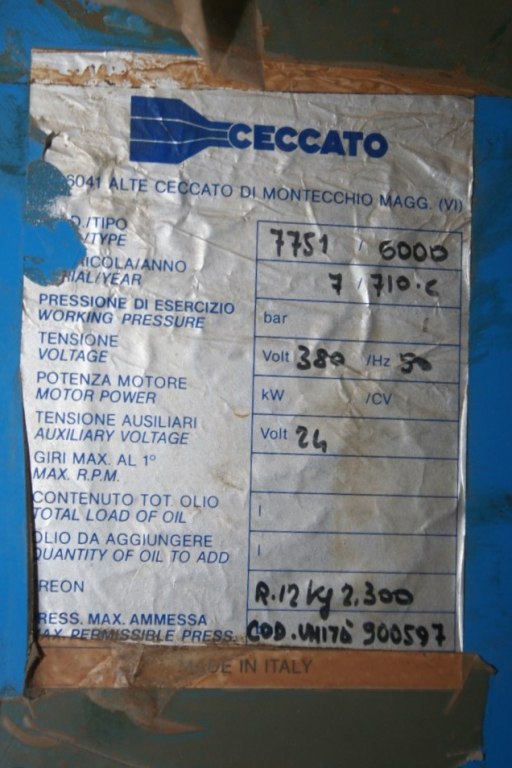 CECCATO
6041 ALTE CECCATO DI MONTECCHIO MAGG. (VI)
D./TIPO
/TYPE
7751 / 6000
ICOLA/ANNO
RIAL/YEAR
7 / 710.C
PRESSIONE DI ESERCIZIO
WORKING PRESSURE
bar
TENSIONE
VOLTAGE
Volt 380 /Hz 50
POTENZA MOTORE
MOTOR POWER
kW /CV
TENSIONE AUSILIARI
AUXILIARY VOLTAGE
Volt 24
GIRI MAX. AL 1°
MAX. R.P.M.
CONTENUTO TOT. OLIO
TOTAL LOAD OF OIL
l
OLIO DA AGGIUNGERE
QUANTITY OF OIL TO ADD
l
REON
R.12 kg 2.300
RESS. MAX. AMMESSA
MAX. PERMISSIBLE PRESS.
COD. UNITÀ 900597
MADE IN ITALY